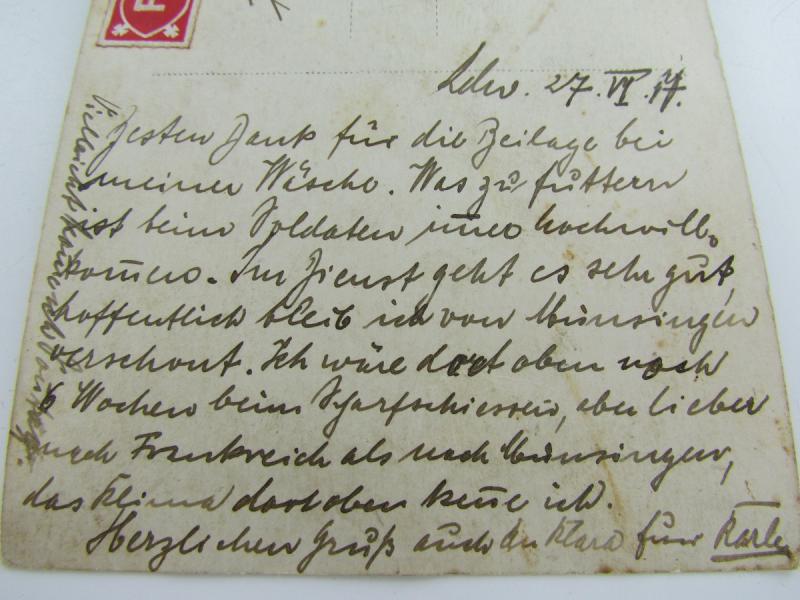 F
Ldw. 27.VI.17.
Besten Dank für die Beilage bei
meiner Wäsche. Was zu futtern
ist beim Soldaten im̅er hochwill-
kom̅en. Im Dienst geht es sehr gut,
hoffentlich bleib ich von Münsingen
verschont. Ich wäre dort oben noch
6 Wochen beim Scharfschiessen, aber lieber
nach Frankreich als nach Münsingen,
das Klima dort oben ken̅e ich.
Herzlichen Gruß auch an Klara
Vielleicht kom̅